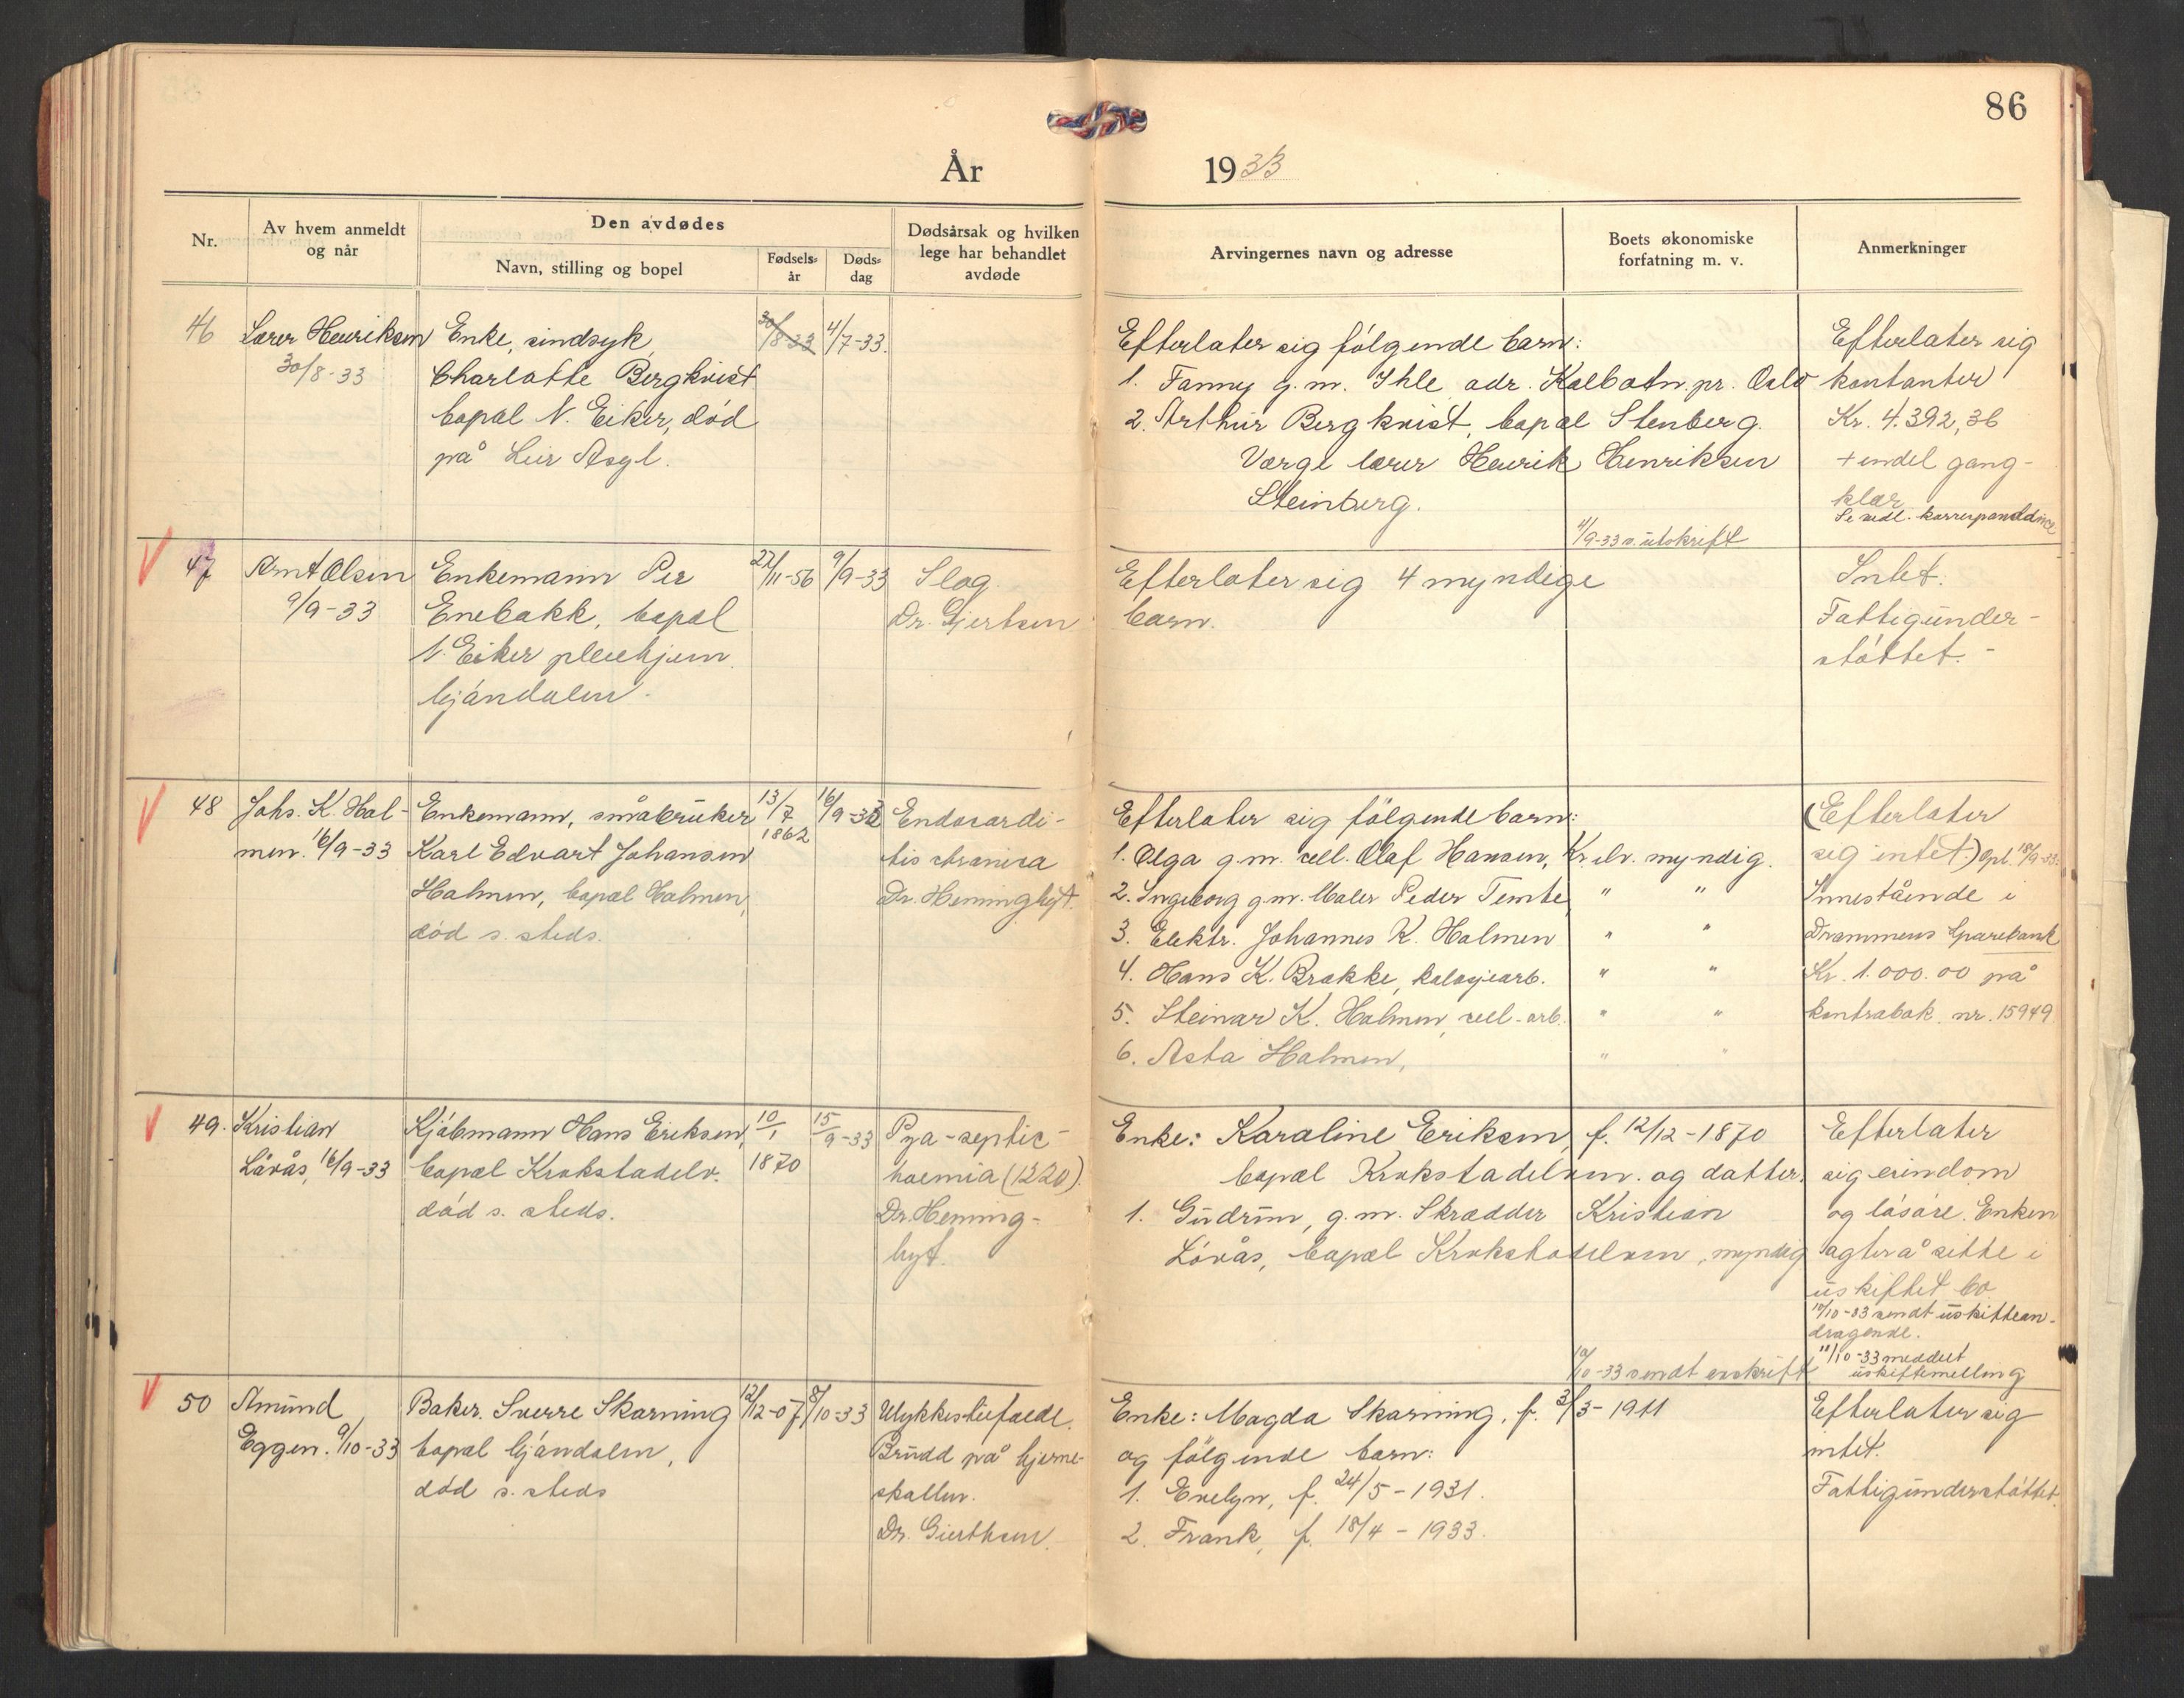 86
År 1933
Nr.
Av hvem anmeldt
og når
Den avdødes
Navn, stilling og bopel
Fødsels-
år
Døds-
dag
Dødsårsak og hvilken
lege har behandlet
avdøde
Arvingernes navn og adresse
Boets økonomiske
forfatning m. v.
Anmerkninger
46
Lærer Henriksen
30/8-33
Enke, sindsyk
Charlotte Bergkvist
bopæl N. Eiker, død
på Lier Asyl.
30/8-33
4/7-33.
Efterlater sig følgende barn:
1. Fanny g.m. Ihle adr. Kolbotn pr. Oslo
2. Arthur Bergkvist, bopæl Stenberg.
Værge lærer Henrik Henriksen
Steinberg.
Efterlater sig
kontanter
Kr. 4.392,36
+ endel gang-
klær
Se vedl. korrespondance
47
Arnt Olsen
9/9-33
Enkemann Per
Enebakk, bopæl
N. Eiker pleiehjem
Mjøndalen.
22/11-56
9/9-33
Slag.
Dr. Gjertsen
11/9-33 s. utskrift
Efterlater sig 4 myndige
barn.
Intet.
Fattigunder-
støttet.-
48
Johs. K. Hol-
men. 16/9-33
Enkemann, småbruker
Karl Edvart Johansen
Holmen, bopæl Holmen,
død s. steds.
13/7
1862
16/9-33
Endocardi-
tis chronica
Dr. Heminghyt.
Efterlater sig følgende barn:
1. Olga g.m. cell. Olaf Hansen, Kr.elv. myndig.
2. Ingeborg g.m. Maler Peder Temte, " "
3. Elektr. Johannes K. Holmen " "
4. Hans K. Brakke, kalosjearb. " "
5. Steinar K. Holmen, cell-arb. " "
6. Asta Holmen, " "
(Efterlater
sig intet.) Opl. 18/9-33.
Innestående i
Drammens Sparebank
Kr. 1.000.00 på
kontrabok nr. 15949
49.
Kristian
Løvås, 16/9-33
Kjøbmann Hans Eriksen,
bopæl Krokstadelv.
død s. steds.
10/1
1870
15/9-33
Pya-septic-
hoemia (1220).
Dr. Heming-
hyt.
Enke: Karoline Eriksen, f. 12/12-1870
bopæl Krokstadelven. og datter.
1. Gudrun, g.m. Skrædder Kristian
Løvås, bopæl Krokstadelven, myndig
Efterlater
sig eiendom
og løsøre. Enken
agter å sitte i
uskiftet bo
10/10-33 sendt uskiftean-
dragende.
11/10-33 meddelt
uskiftemelding
50
Amund
Eggen. 9/10-33
Baker. Sverre Skarning
bopæl Mjøndalen,
død s. steds
12/12-07
8/10-33
Ulykkestilfælde.
Brudd på hjerne-
skallen.
Dr. Gierthsen.
10/10-33 sendt avskrift
Enke: Magda Skarning, f. 3/3-1911
og følgende barn:
1. Evelyn, f. 24/5-1931.
2. Frank, f. 18/4-1933.
Efterlater sig
intet.
Fattigunderstøttet.